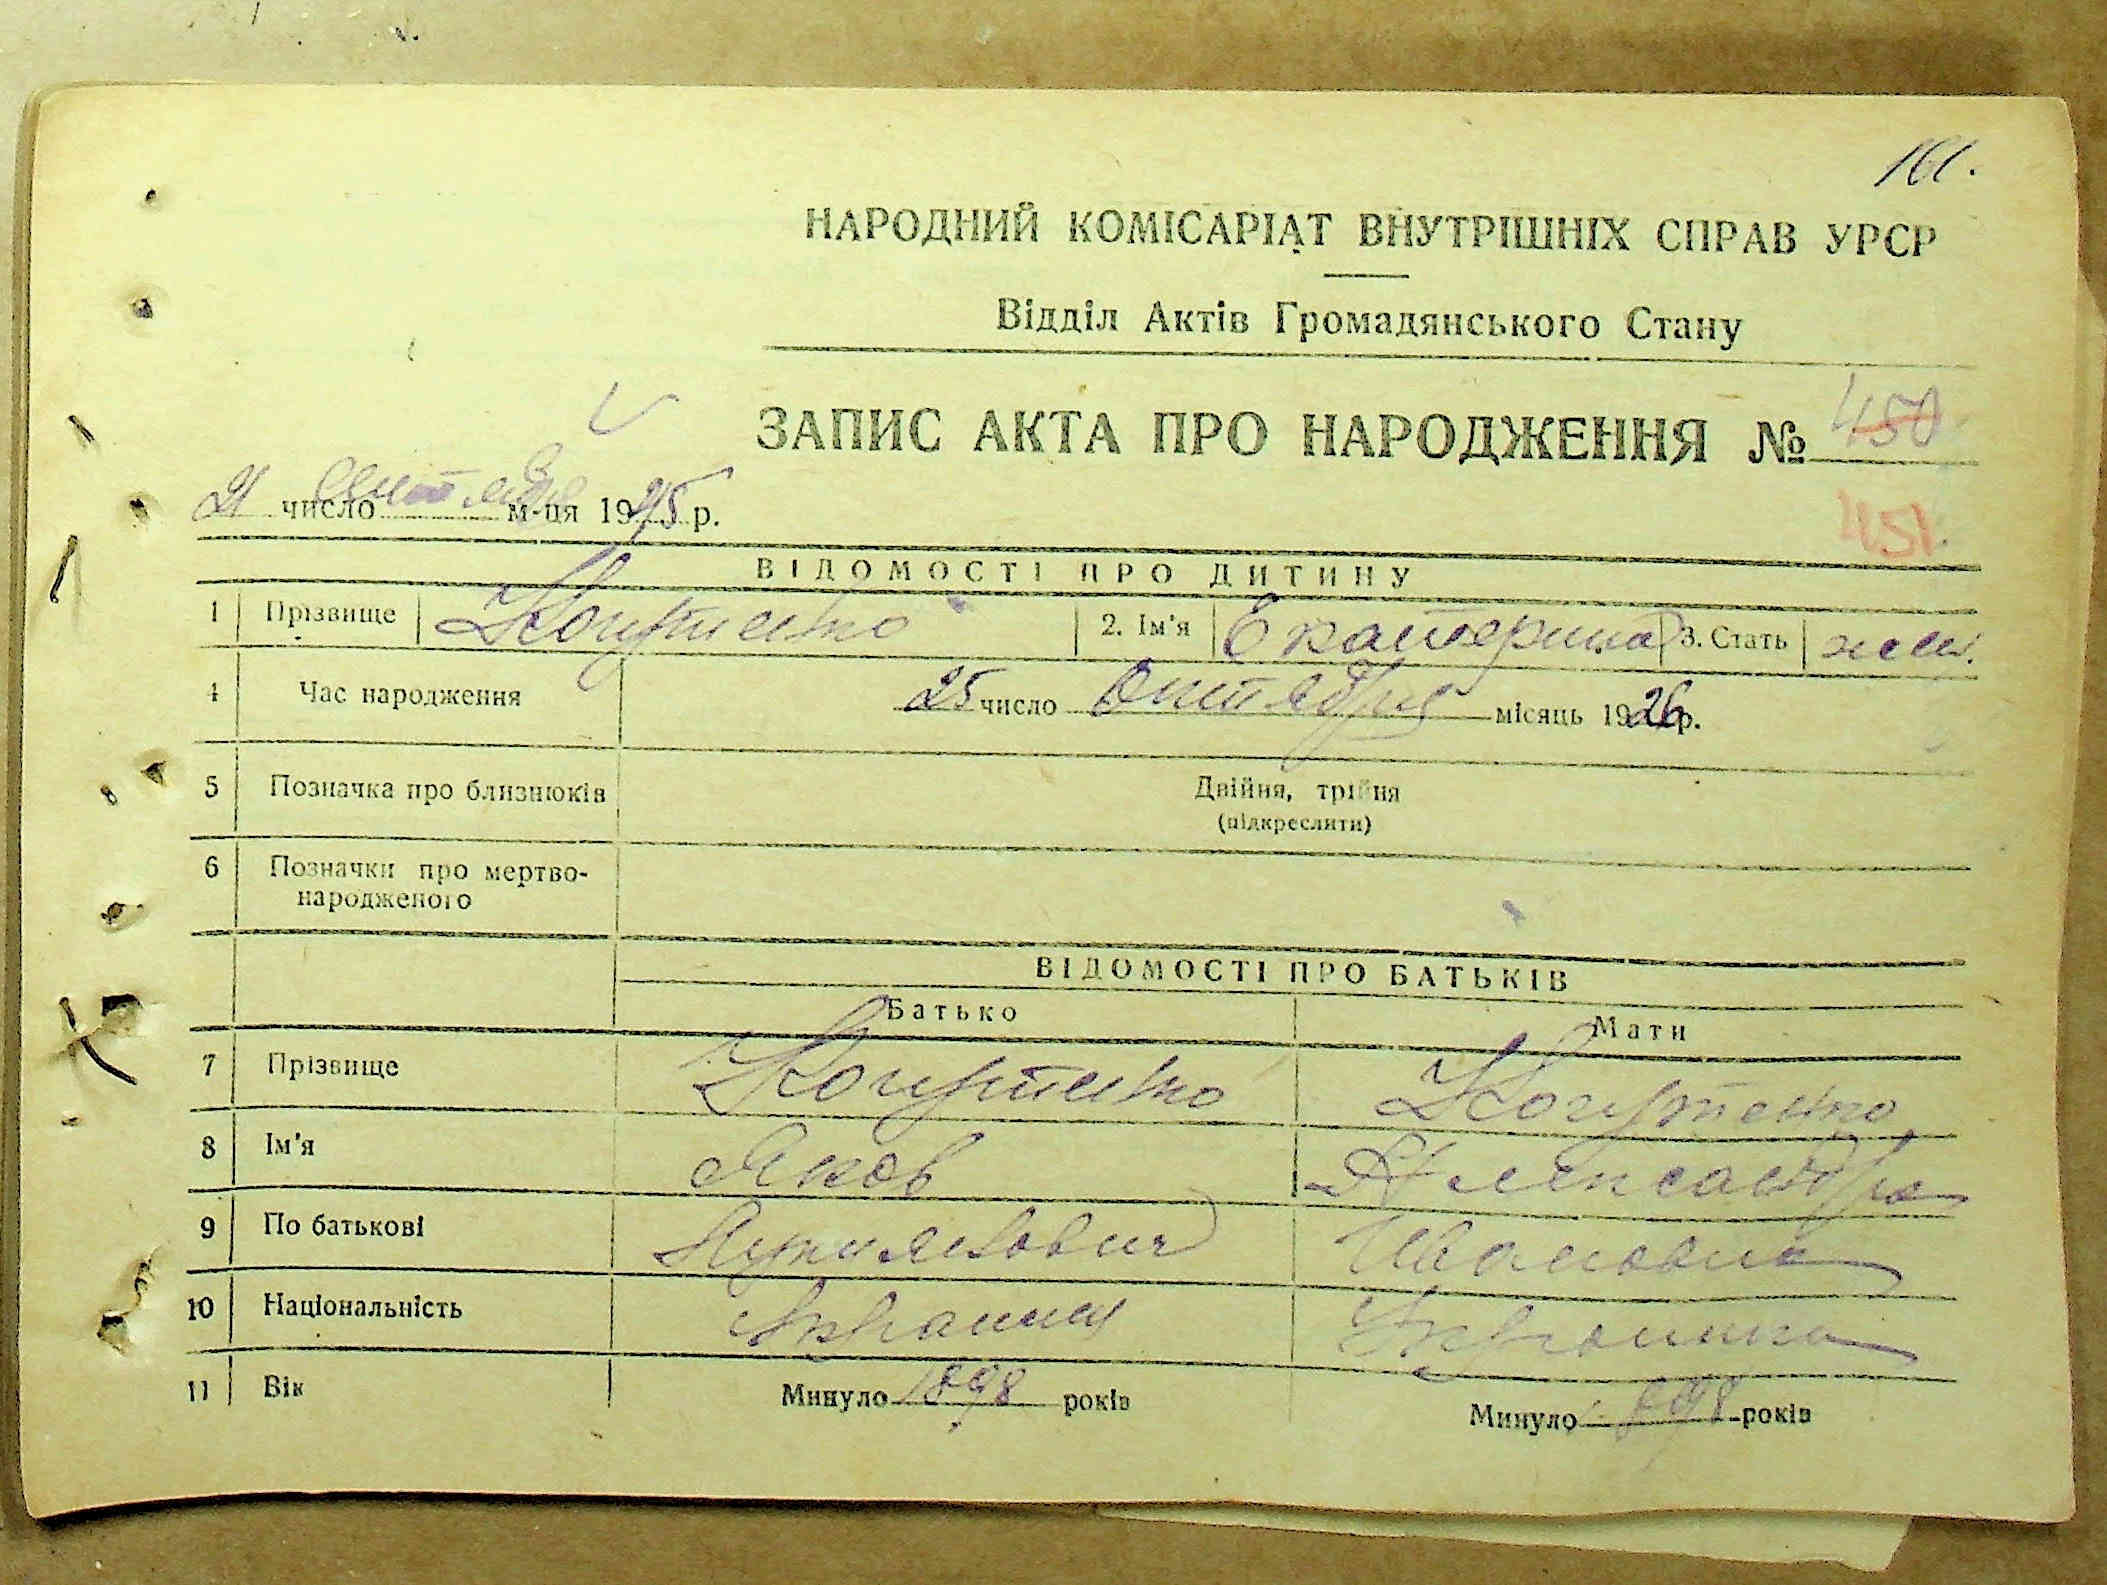 161.
НАРОДНИЙ КОМІСАРІАТ ВНУТРІШНІХ СПРАВ УРСР
Відділ Актів Громадянського Стану
ЗАПИС АКТА ПРО НАРОДЖЕННЯ № 450
451.
21 число сентября м-ця 1945 р.
ВІДОМОСТІ ПРО ДИТИНУ
1 Прізвище 2. Ім'я Екатерина 3. Стать жен.
4 Час народження 25 число Октября місяць 1926 р.
5 Позначка про близнюків Двійня, трійня
(підкреслити)
6 Позначки про мертво-
народженого
ВІДОМОСТІ ПРО БАТЬКІВ
Батько Мати
7 Прізвище
8 Ім'я Яков Александра
9 По батькові Ивановна
10 Національність Украинец Украинка
11 Вік Минуло 1898 років Минуло 1898 років